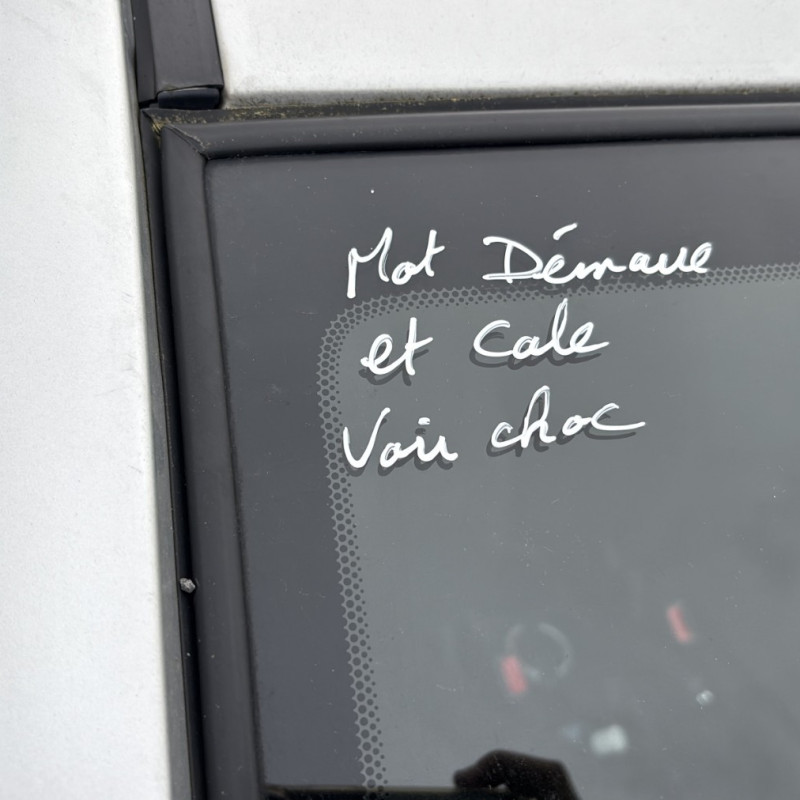 Mot Démarre
et Cale
Voir choc